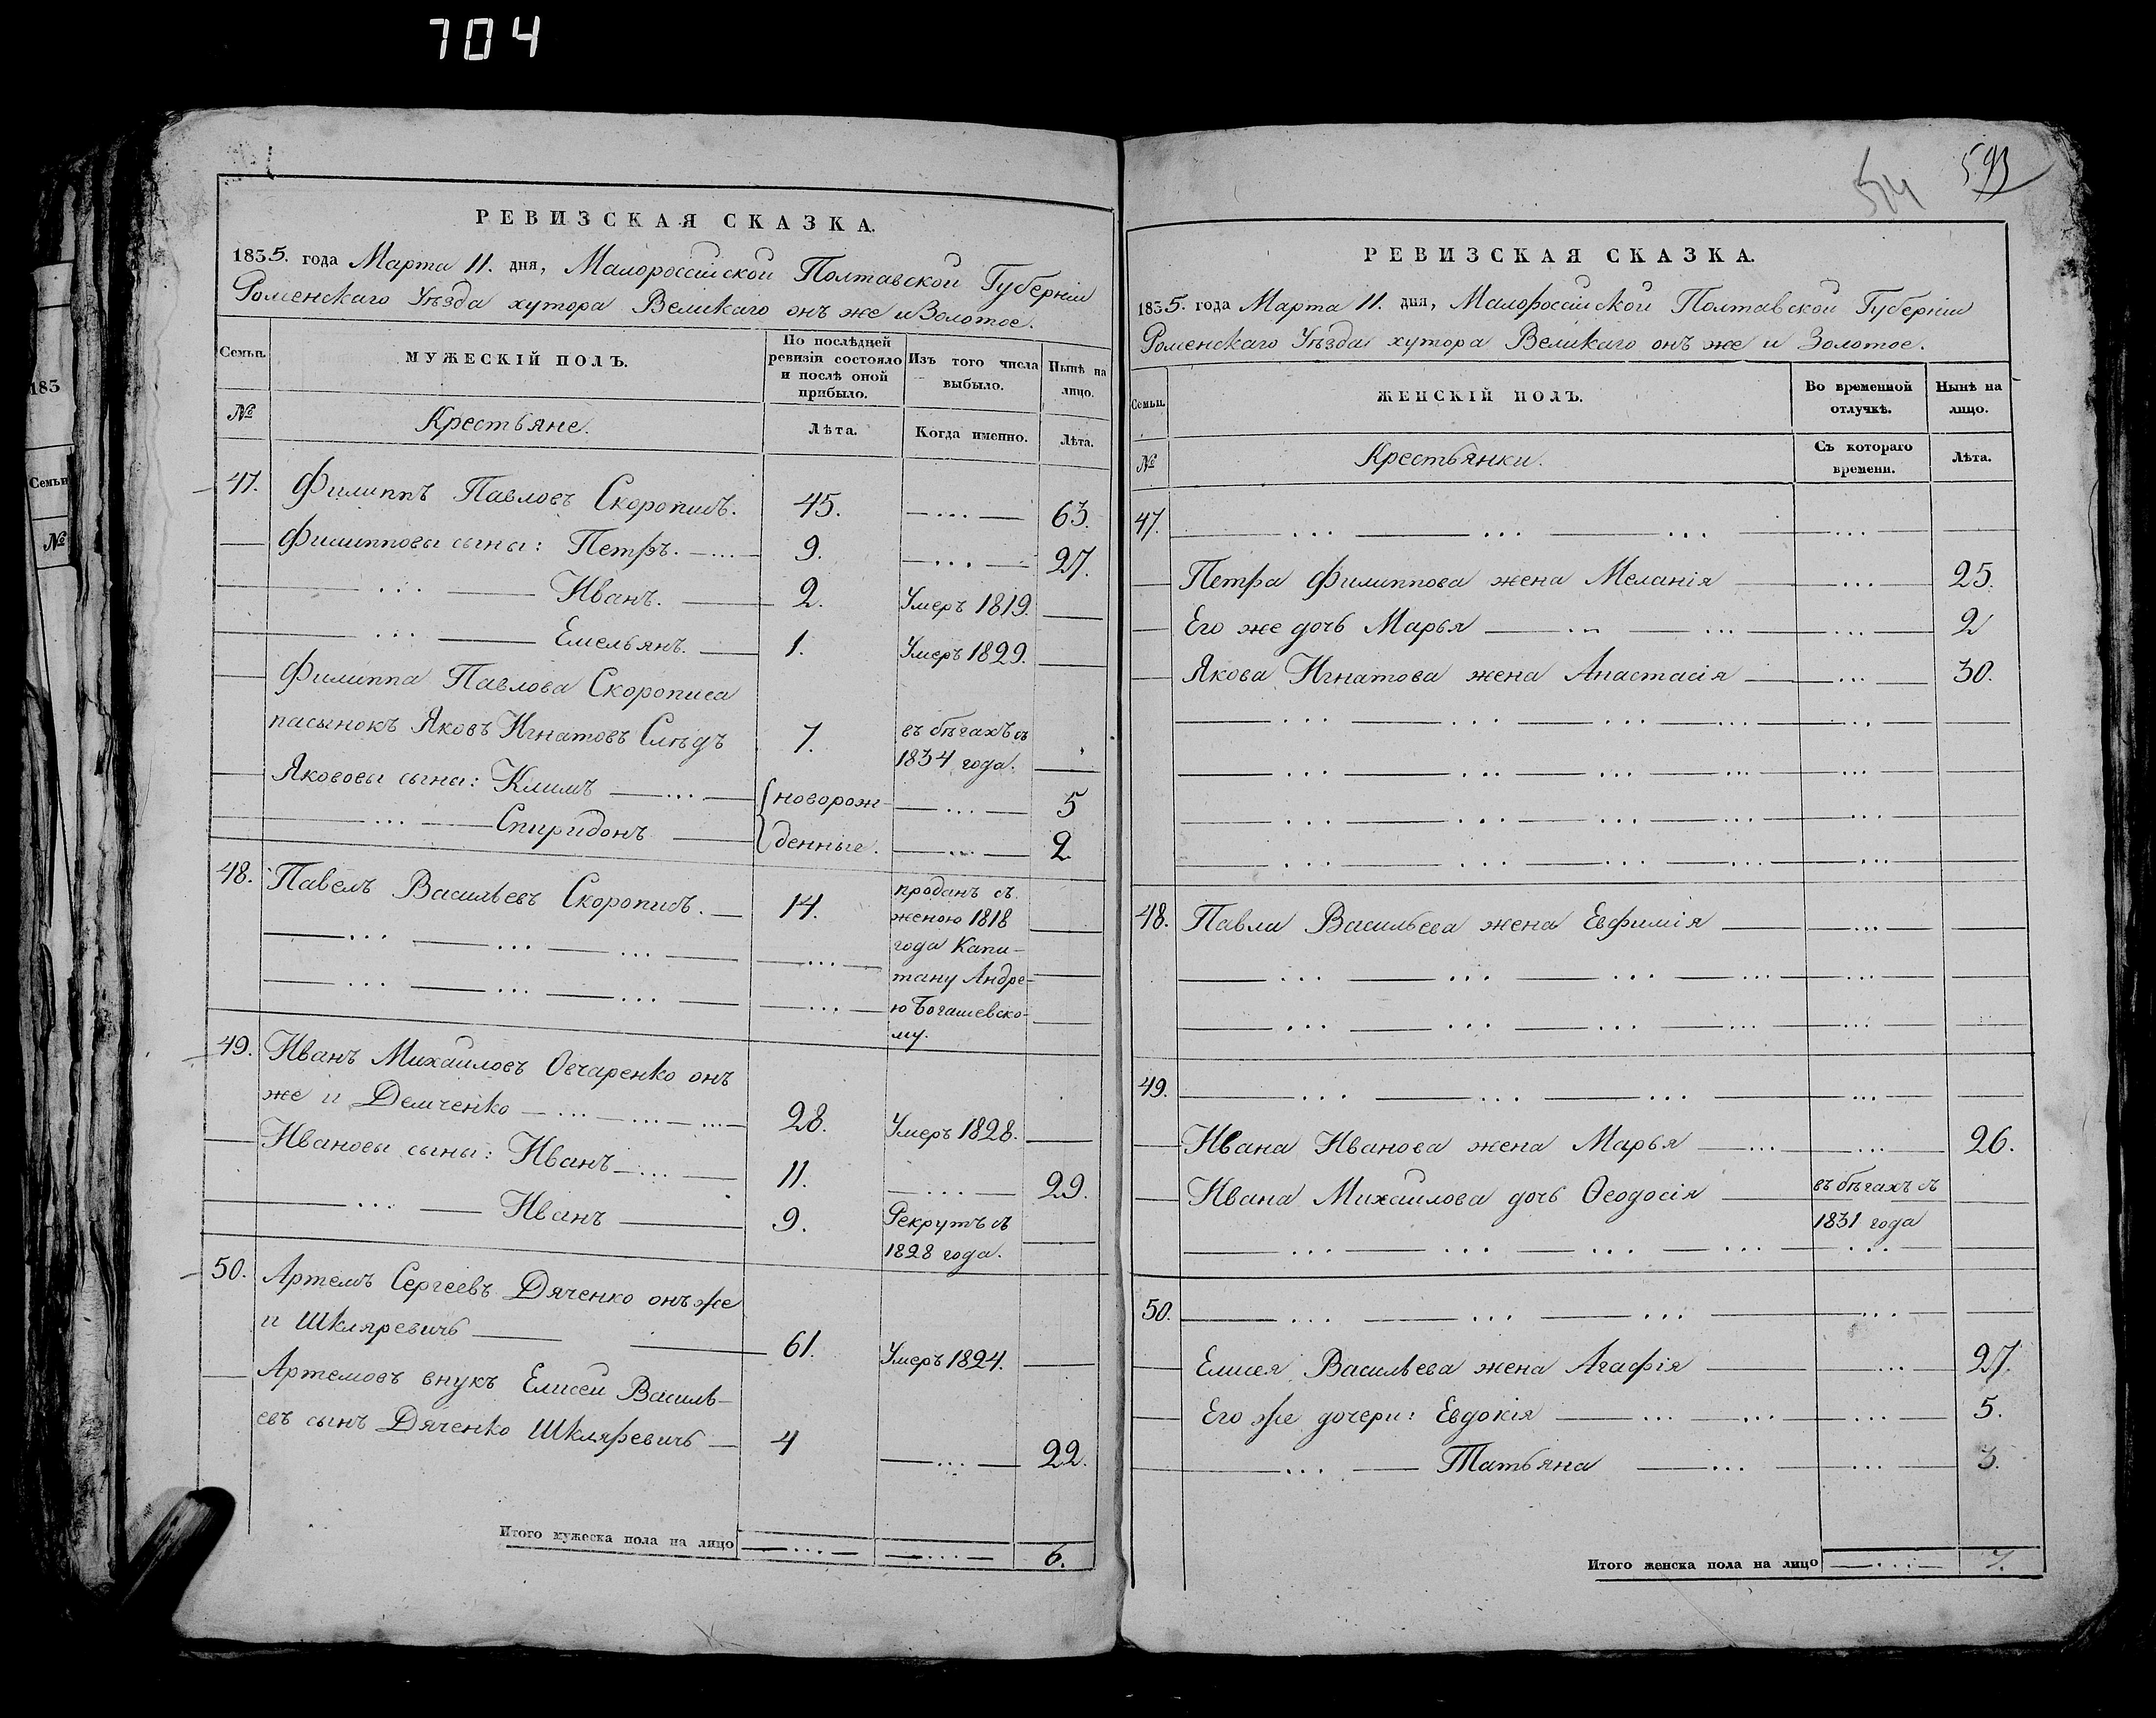 704
РЕВИЗСКАЯ СКАЗКА.
1835. года Марта 11. дня, Малороссійской Полтавской Губерніи
Роменскаго Уѣзда хутора Великаго онъ же и Золотое.
Семьи. МУЖЕСКІЙ ПОЛЪ. По послѣдней ревизіи состояло и послѣ оной прибыло. Изъ того числа выбыло. Нынѣ на лицо.
№ Крестьяне. Лѣта. Когда именно. Лѣта.
47. Филиппъ Павловъ Скорописъ. 45. — ... — 63.
Филипповы сыны: Петръ. — ... — 9. — ... — 27.
— ... — Иванъ. — 2. Умеръ 1819. —
— ... — Емельянъ. — 1. Умеръ 1829. —
Филиппа Павлова Скорописа
пасынокъ Яковъ Игнатовъ Слѣдъ 7. въ бѣгахъ съ
1834 года. —
Якововы сыны: Климъ — ... — новорож- — ... — 5
— ... — Спиридонъ — денные. — ... — 2
48. Павелъ Васильевъ Скорописъ. — 14. проданъ съ
женою 1818
года Капи-
тану Андре-
ю Богашевско-
му.
49. Иванъ Михайловъ Овчаренко онъ
же и Демченко — ... — ... — 28. Умеръ 1828. —
Ивановы сыны: Иванъ — ... — 11. — ... — 29.
— ... — Иванъ — 9. Рекрутъ съ
1828 года. —
50. Артемъ Сергеевъ Дяченко онъ же
и Шкляревичь — 61. Умеръ 1824. —
Артемовъ внукъ Елисей Василь-
евъ сынъ Дяченко Шкляревичь — 4 — ... — 22.
Итого мужеска пола на лицо — ... — — ... — 6.
593
РЕВИЗСКАЯ СКАЗКА.
1835. года Марта 11. дня, Малороссійской Полтавской Губерніи
Роменскаго Уѣзда хутора Великаго онъ же и Золотое.
Семьи. ЖЕНСКІЙ ПОЛЪ. Во временной отлучкѣ. Нынѣ на лицо.
№ Крестьянки. Съ котораго времени. Лѣта.
47. — ... — ... — ... — ... —
Петра Филиппова жена Меланія — ... — 25.
Его же дочь Марья — ... — ... — ... — 2
Якова Игнатова жена Анастасія — ... — 30.
— ... — ... — ... — ... — ... —
— ... — ... — ... — ... — ... —
— ... — ... — ... — ... — ... —
— ... — ... — ... — ... — ... —
48. Павла Васильева жена Евфимія — ... — —
— ... — ... — ... — ... — ... —
— ... — ... — ... — ... — ... —
49. — ... — ... — ... — ... —
Ивана Иванова жена Марья — ... — ... — 26.
Ивана Михайлова дочь Ѳеодосія — въ бѣгахъ съ —
1831 года
— ... — ... — ... — ... — ... —
50. — ... — ... — ... — ... —
Елисея Васильева жена Агафія — ... — 27.
Его же дочери: Евдокія — ... — ... — ... — 5.
— ... — Татьяна — ... — ... — 3.
Итого женска пола на лицо — ... — 7.
183
Семьи
№